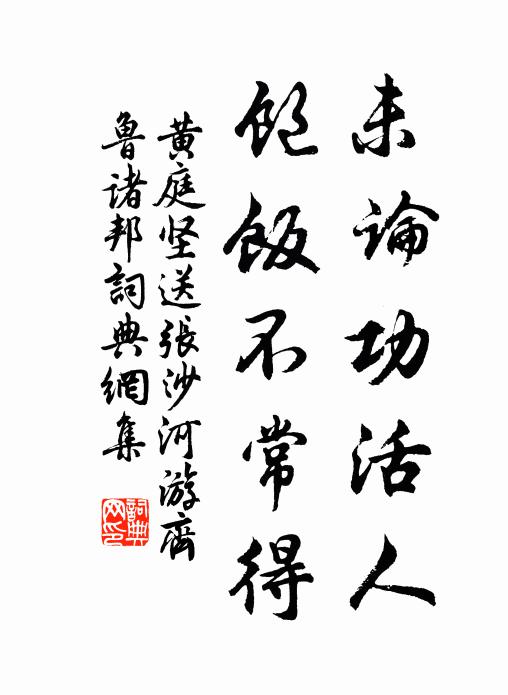 未论功活人
饱饭不常得
黄庭坚送張沙河游齊
魯诸邦詞典網集
詞典
网印